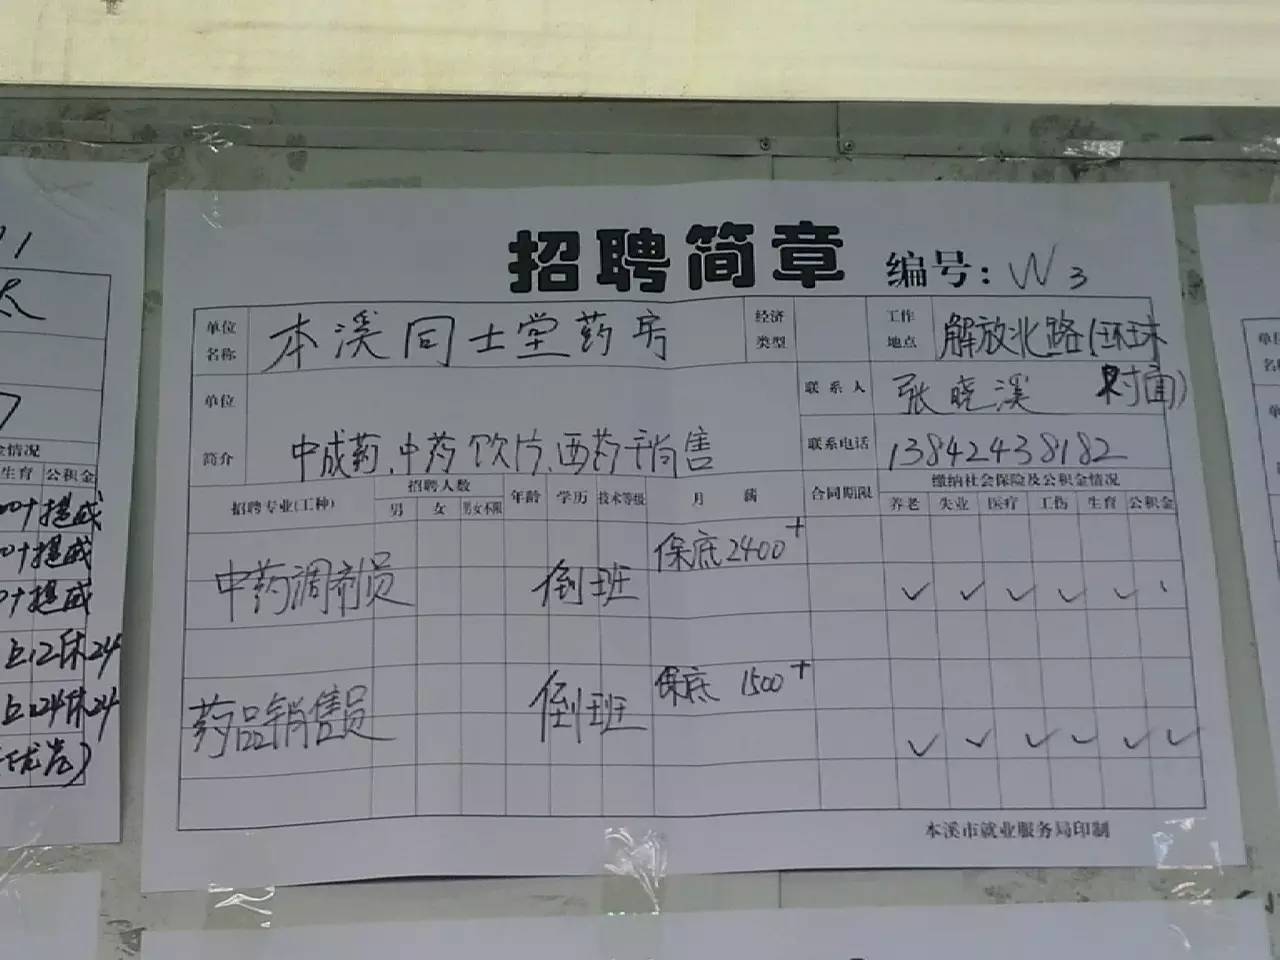 招聘简章 编号：W3
单位名称 本溪同士堂药房 经济类型 工作地点 解放北路(环球对面)
单位简介 中成药、中药饮片、西药销售 联系人 张晓溪
联系电话 13842438182
招聘专业(工种) 招聘人数 年龄 学历 技术等级 月薪 合同期限 缴纳社会保险及公积金情况
男 女 男女不限 养老 失业 医疗 工伤 生育 公积金
中药调剂员 倒班 保底2400+ ✓ ✓ ✓ ✓ ✓
药品销售员 倒班 保底 1500+ ✓ ✓ ✓ ✓ ✓ ✓
本溪市就业服务局印制
金情况
生育 公积金
00+提成
00+提成
0+提成
上12休24
上24休24